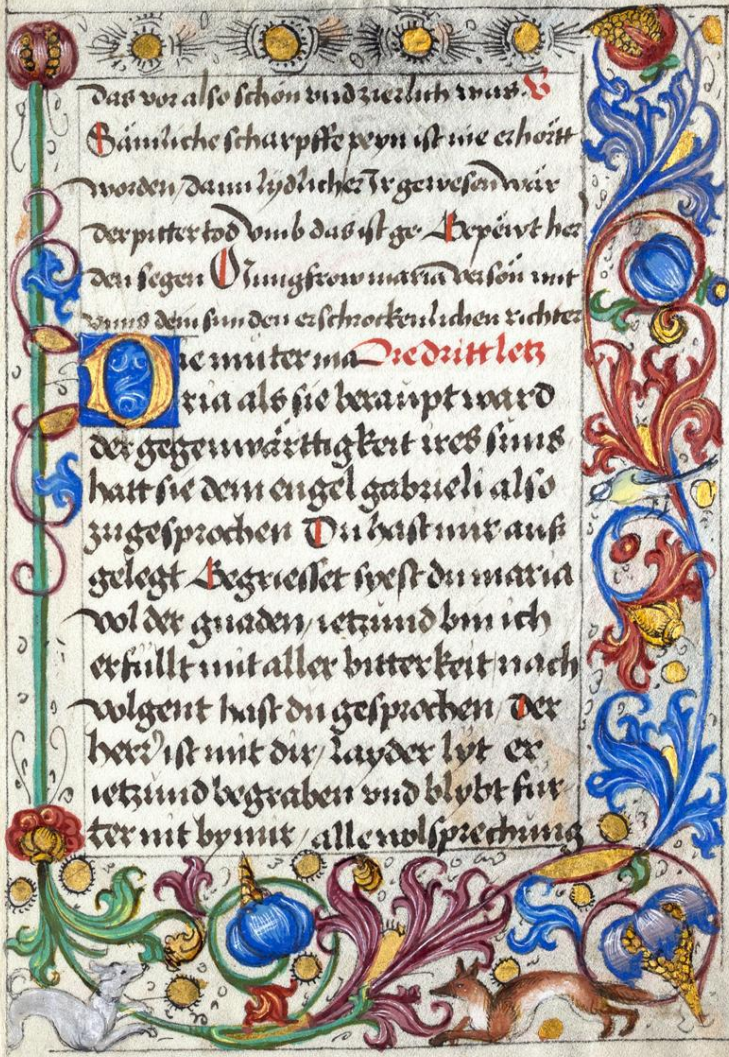 das vor also schön vnd zierlich was. V
Sämliche scharpffe peyn ist nie erhörtt
worden / dann lydlicher Ir gewesen wär
der pitter tod vmb das ist ge Gepëwt her
den segen O Jungfrow maria versön mit
vnns dem sun den erschrockenlichen richter
Die muter ma Die dritt letz
ria als sie beraupt ward
der gegenwärttigkeit ires suns
hatt sie dem engel gabrieli also
zugesprochen Du hast mir auß
gelegt Gegriesset syest du maria
vol der gnaden / ietzund bin ich
erfüllt mit aller bitterkeit / nach
volgent hast du gesprochen / Der
herr ist mit dir / layder lyt er
ietzund begraben vnd blybt für
ter nit by mir / alle wolsprechung